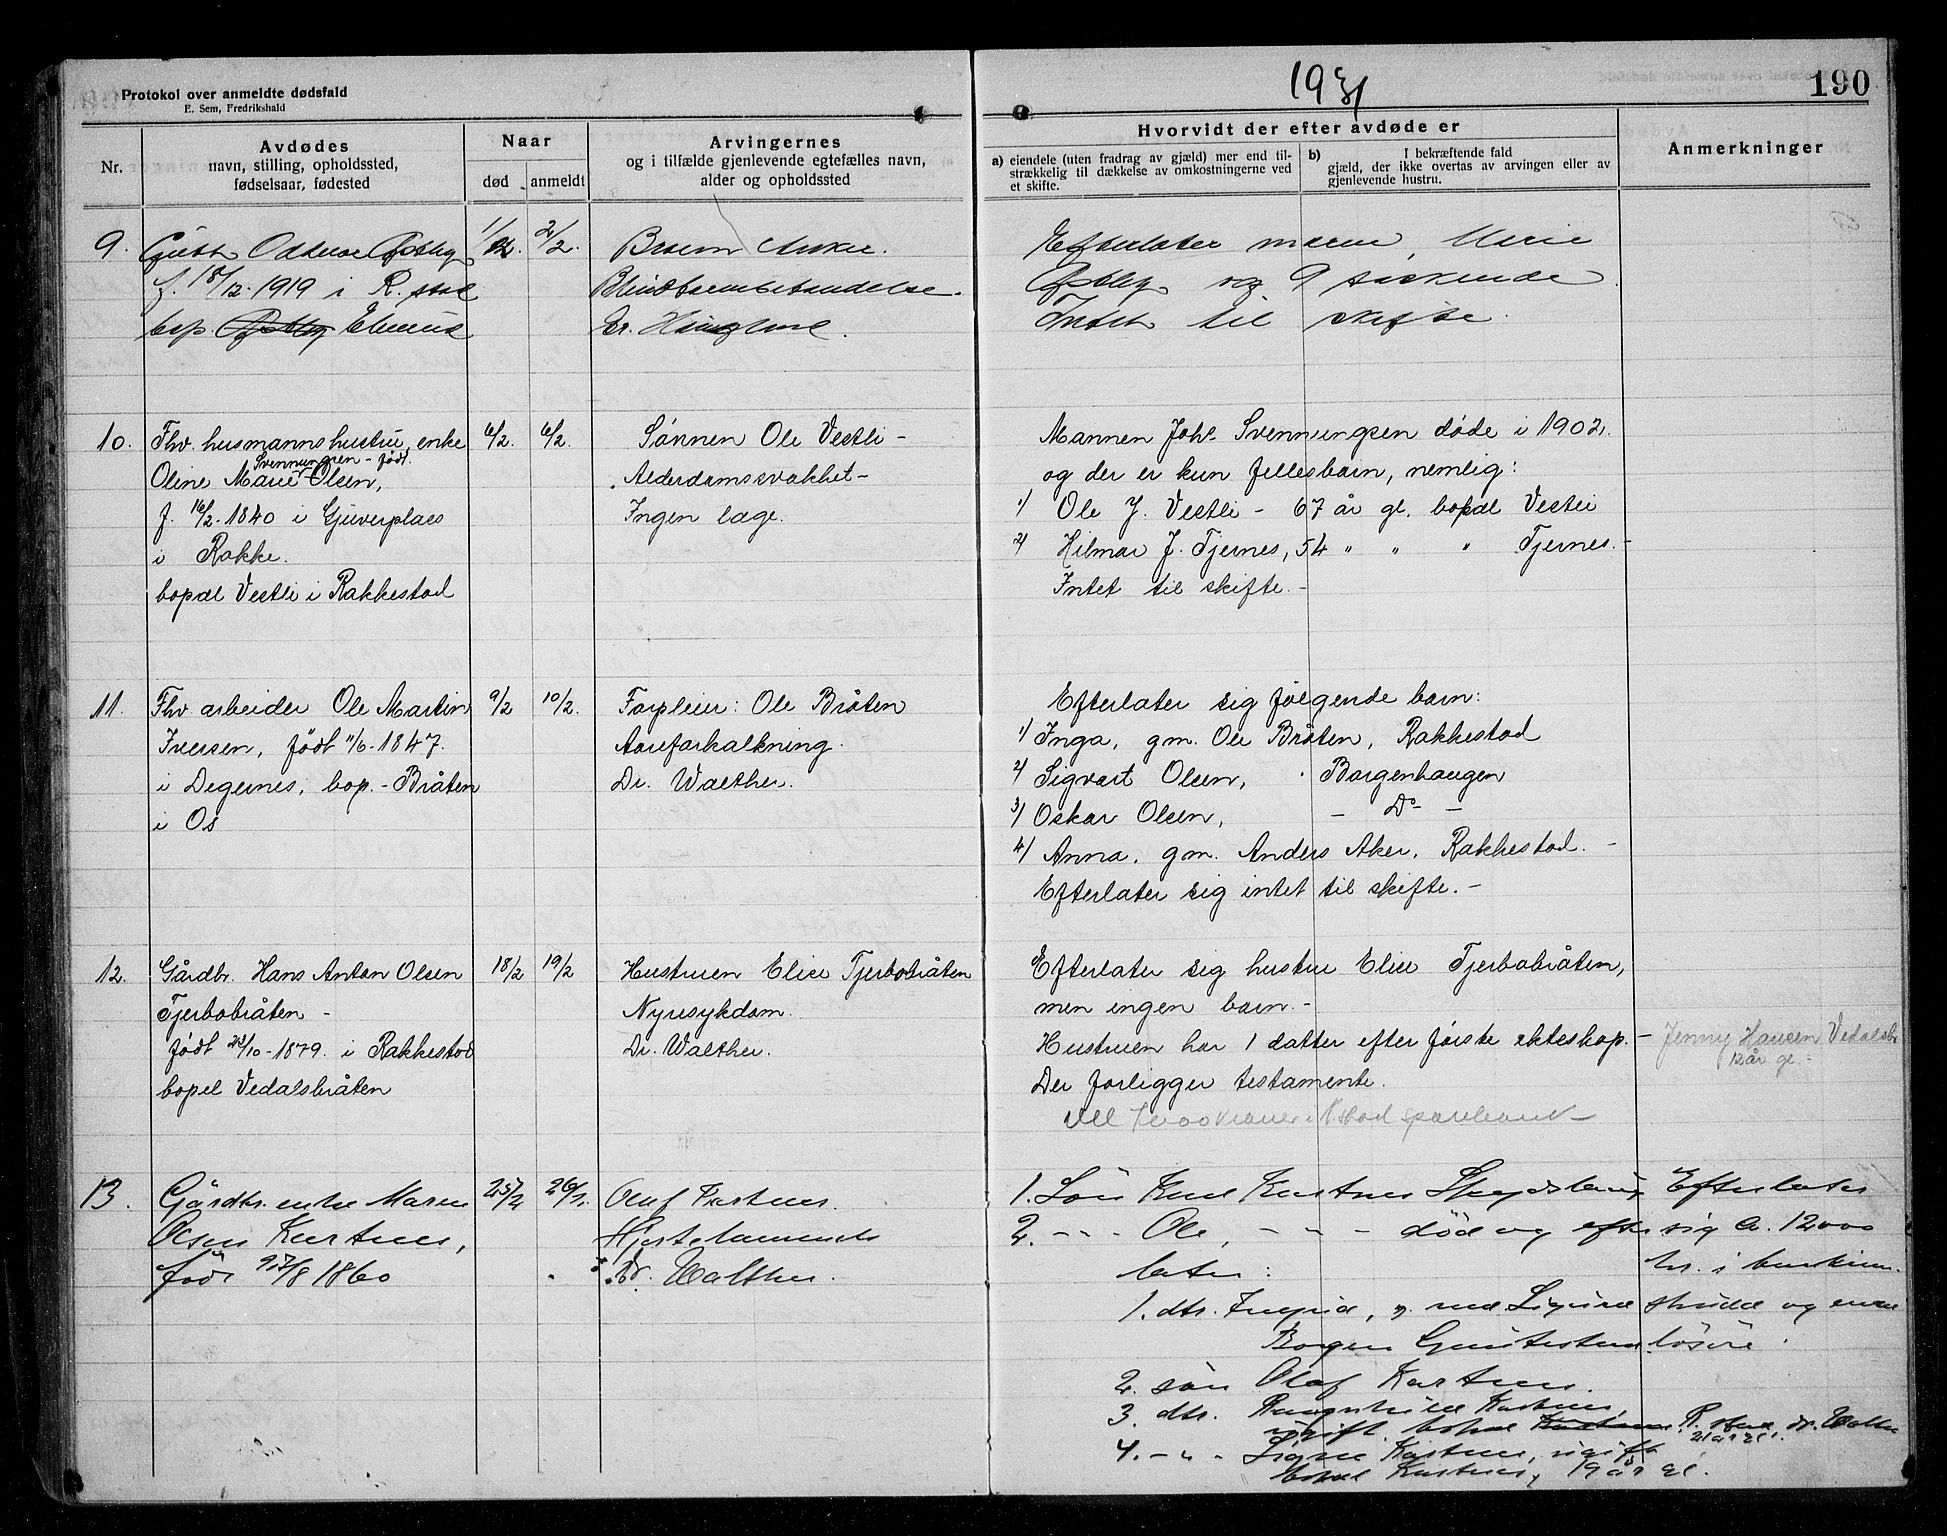 Protokol over anmeldte dødsfald
E. Sem, Fredrikshald
1931
190
Nr.
Avdødes
navn, stilling, opholdssted,
fødselsaar, fødested
Naar
død
anmeldt
Arvingernes
og i tilfælde gjenlevende egtefælles navn,
alder og opholdssted
Hvorvidt der efter avdøde er
a) eiendele (uten fradrag av gjæld) mer end til-
strækkelig til dækkelse av omkostningerne ved
et skifte.
b) I bekræftende fald
gjæld, der ikke overtas av arvingen eller av
gjenlevende hustru.
Anmerkninger
9.
f. 18/12-1919 i R.stad
bop.
1/2.
2/2.
Broren
Blindtarmbetendelse.
Dr.
Efterlater moren, Marie
og 9 søskende.
Intet til skifte.
10.
Fhv. husmannshustru, enke
Svennungsen - født.
Oline Marie Olsen,
f. 16/2-1840 i Gjuverplads
i Rakke.
bopæl Vestli i Rakkestad
6/2.
6/2.
Sønnen Ole Vestli -
Alderdomssvakhet -
Ingen læge.
Mannen Johs Svennungsen døde i 1902.
og der er kun fellesbarn, nemlig:
1) Ole J. Vestli - 67 år gl. bopæl Vestli
2) Hilmar J. Tjernes, 54 " " " Tjernes. -
Intet til skifte. -
11.
Fhv. arbeider Ole Martin
Iversen, født 11/6-1847.
i Degernes, bop. - Bråten
i Os
9/2
10/2.
Forpleier: Ole Bråten
Aareforkalkning.
Dr. Walther.
Efterlater sig følgende barn:
1) Inga, gm. Ole Bråten, Rakkestad
2) Sigvart Olsen, Borgenhaugen
3) Oskar Olsen, - Do -
4) Anna, gm. Anders Aker, Rakkestad. -
Efterlater sig intet til skifte. -
12.
Gårdbr. Hans Anton Olsen
Tjerbobråten -
født 23/10-1879. i Rakkestad
bopel Vedalsbråten
18/2
19/2
Hustruen Elise Tjerbobråten
Nyresykdom.
Dr. Walther.
Efterlater sig hustru Elise Tjerbobråten,
men ingen barn. -
Hustruen har 1 datter efter første ekteskap. - Jenny Hansen Vedalsbr.
12 år gl. -
Der forligger testamente.
kroner i R.stad sparebank -
13.
Gårdbr. enke Maren
Olsen Kastnes,
født 27/8 1860
25/2
26/2.
Olaf Kastnes.
Hjertelammelse
Dr. Walther.
1. Søn Karl Kastnes
2. - " - Ole, - " - død og efter-
later:
1. dtr. Ingrid, g. med Sigurd
Borgen
2. søn Olaf Kastnes.
3. dtr. Ragnhild Kastnes,
ugift, bopæl Kastnes R.stad, dr. Walther
21 år gl.
4. - " - Signe Kastnes, ugift
bopæl Kastnes, 19 år gl.
Efterlater
sig ca. 12000
kr. i
og
løsøre.